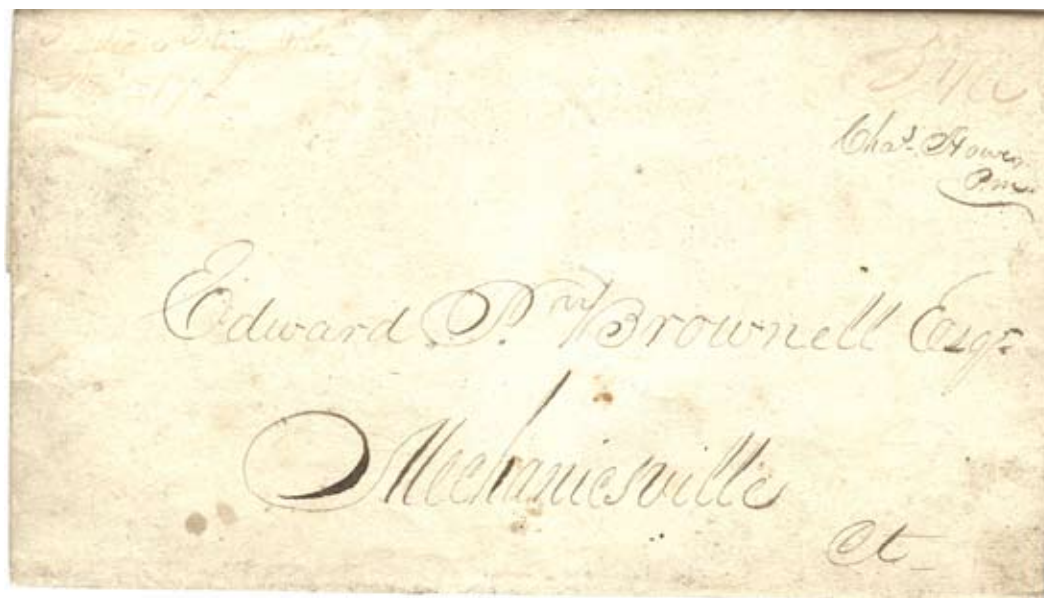 Free
Chas. Howen
P.m.
Edward P. Brownell Esqr
Mechanicsville
Ct